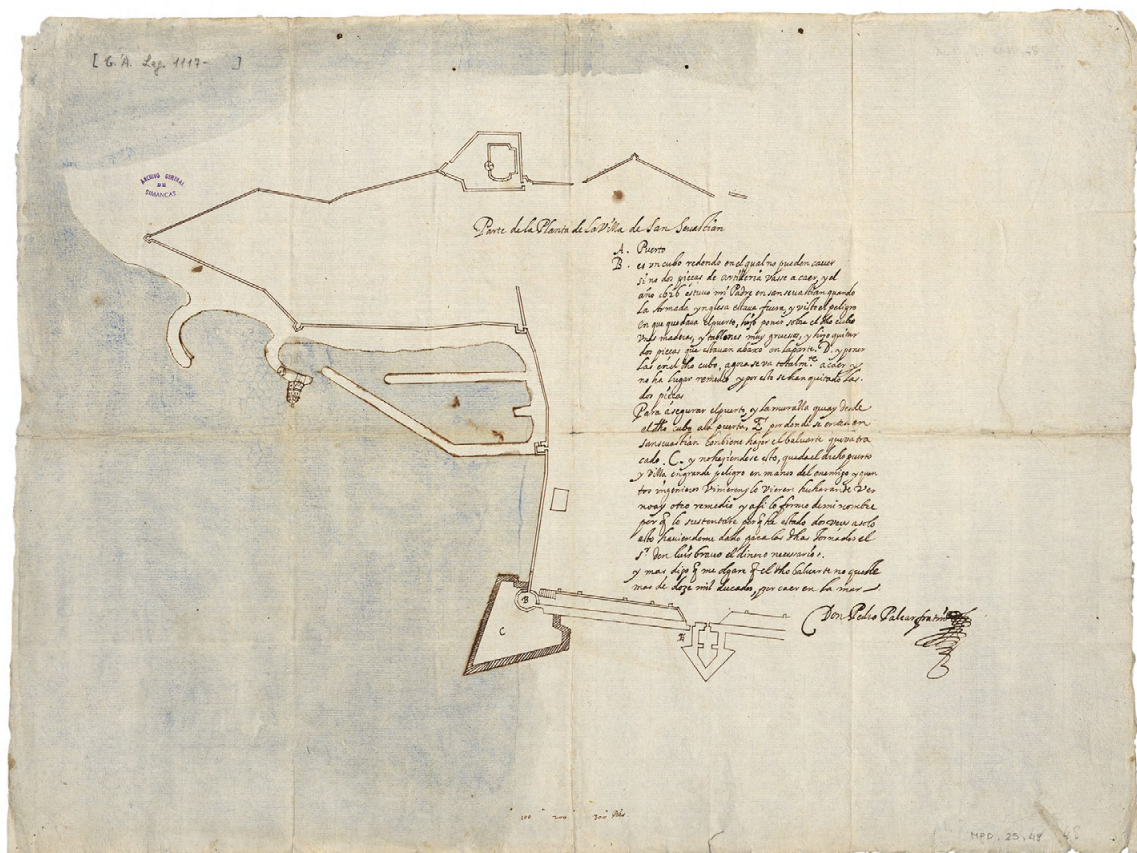 [G. A. Leg. 1117- ]
ARCHIVO GENERAL
DE
SIMANCAS
Parte de la Planta de La Villa de San Seuastian
A. Puerto
B. es un cubo redondo en el qual no pueden cauer
si no dos pieças de artilleria vasse a caer, y el
año 1626 estuuo mi Padre en san seuastian quando
la Armada ynglesa estaua fuera, y visto el peligro
en que quedaua el puerto, hiço poner sobre el dho cubo
unas maderas, y tablones muy gruesos, y hiço quitar
dos pieças que estauan abaxo en la parte. D. y poner
las en el dho cubo, agora se va totalmte a caer y
no ha lugar remedio y por esto se han quitado las
dos pieças
Para asegurar el puerto, y la muralla que ay desde
el dho cubo a la puerta, E por donde se entra en
sanseuastian conbiene hazer el baluarte que va tra
cado. C. y no haziendose esto, queda el dicho puerto
y Villa en grande peligro en manos del enemigo y quan
tros ingenieros Vinieren y lo Vieren hecharan de Ver
no ay otro remedio y assi lo firmo de mi nombre
por q lo sustentare por q he estado dos veces a solo
esto hauiendome dado para las dhas Jornadas el
Sr Don luis brauo el dinero necessario.
y mas digo q me olgare q el dho baluarte no queste
mas de doze mil ducados, por caer en la mar
Don Pedro Palear fratin
A
B
C
E
100 200 300 Pies
MPD. 25, 48
48